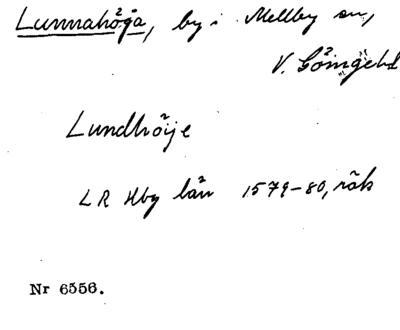 Lunnahöja, by i Mellby sn,
V. Göingehd
Lundhöije
LR Hby län 1579-80, räk
Nr 6556.